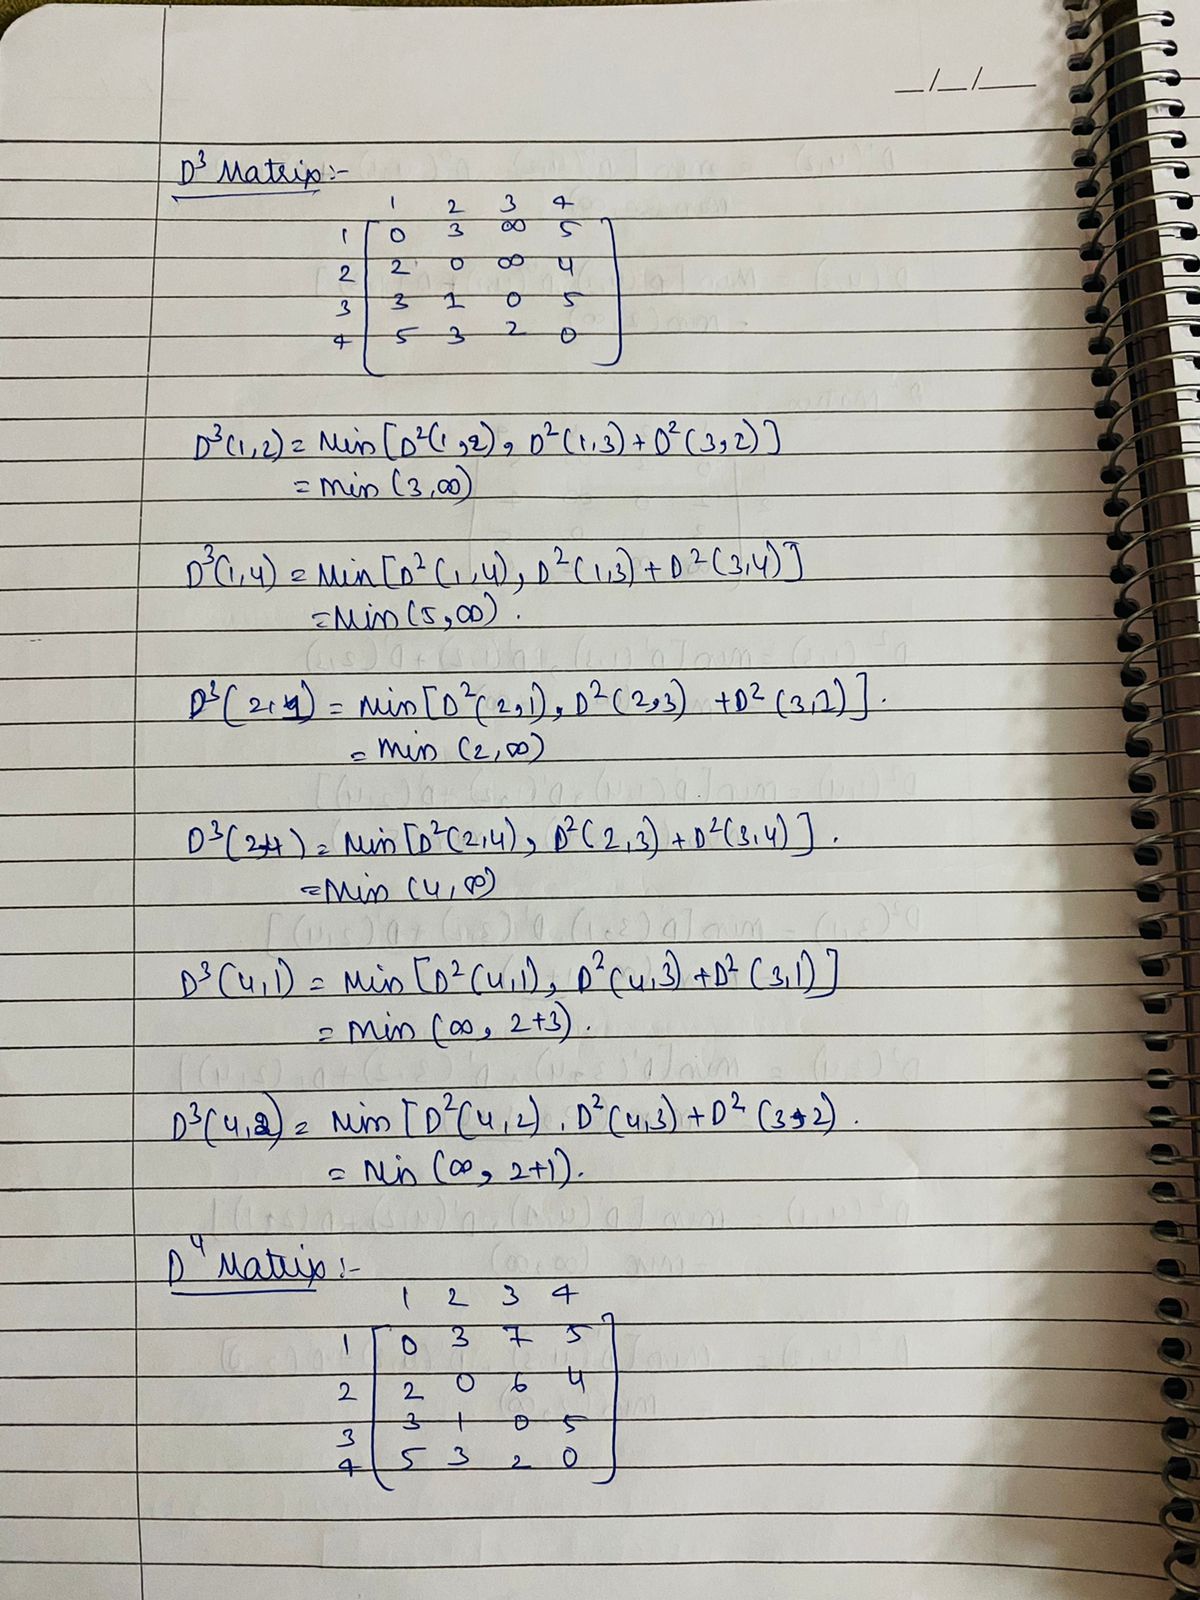 __/__/___
D³ Matrix:-
1 2 3 4
1 0 3 ∞ 5
2 2 0 ∞ 4
3 3 1 0 5
4 5 3 2 0
D³(1,2) = Min [D²(1,2), D²(1,3) + D²(3,2)]
= min (3,∞)
D³(1,4) = Min [D²(1,4), D²(1,3) + D²(3,4)]
= Min (5,∞).
D³(2,1) = Min [D²(2,1), D²(2,3) + D²(3,1)].
= min (2,∞)
D³(2,4) = Min [D²(2,4), D²(2,3) + D²(3,4)].
= Min (4,∞)
D³(4,1) = Min [D²(4,1), D²(4,3) + D² (3,1)]
= min (∞, 2+3).
D³(4,2) = Min [D²(4,2). D²(4,3) + D² (3,2).
= Min (∞, 2+1).
D⁴ Matrix:-
1 2 3 4
1 0 3 7 5
2 2 0 6 4
3 3 1 0 5
4 5 3 2 0